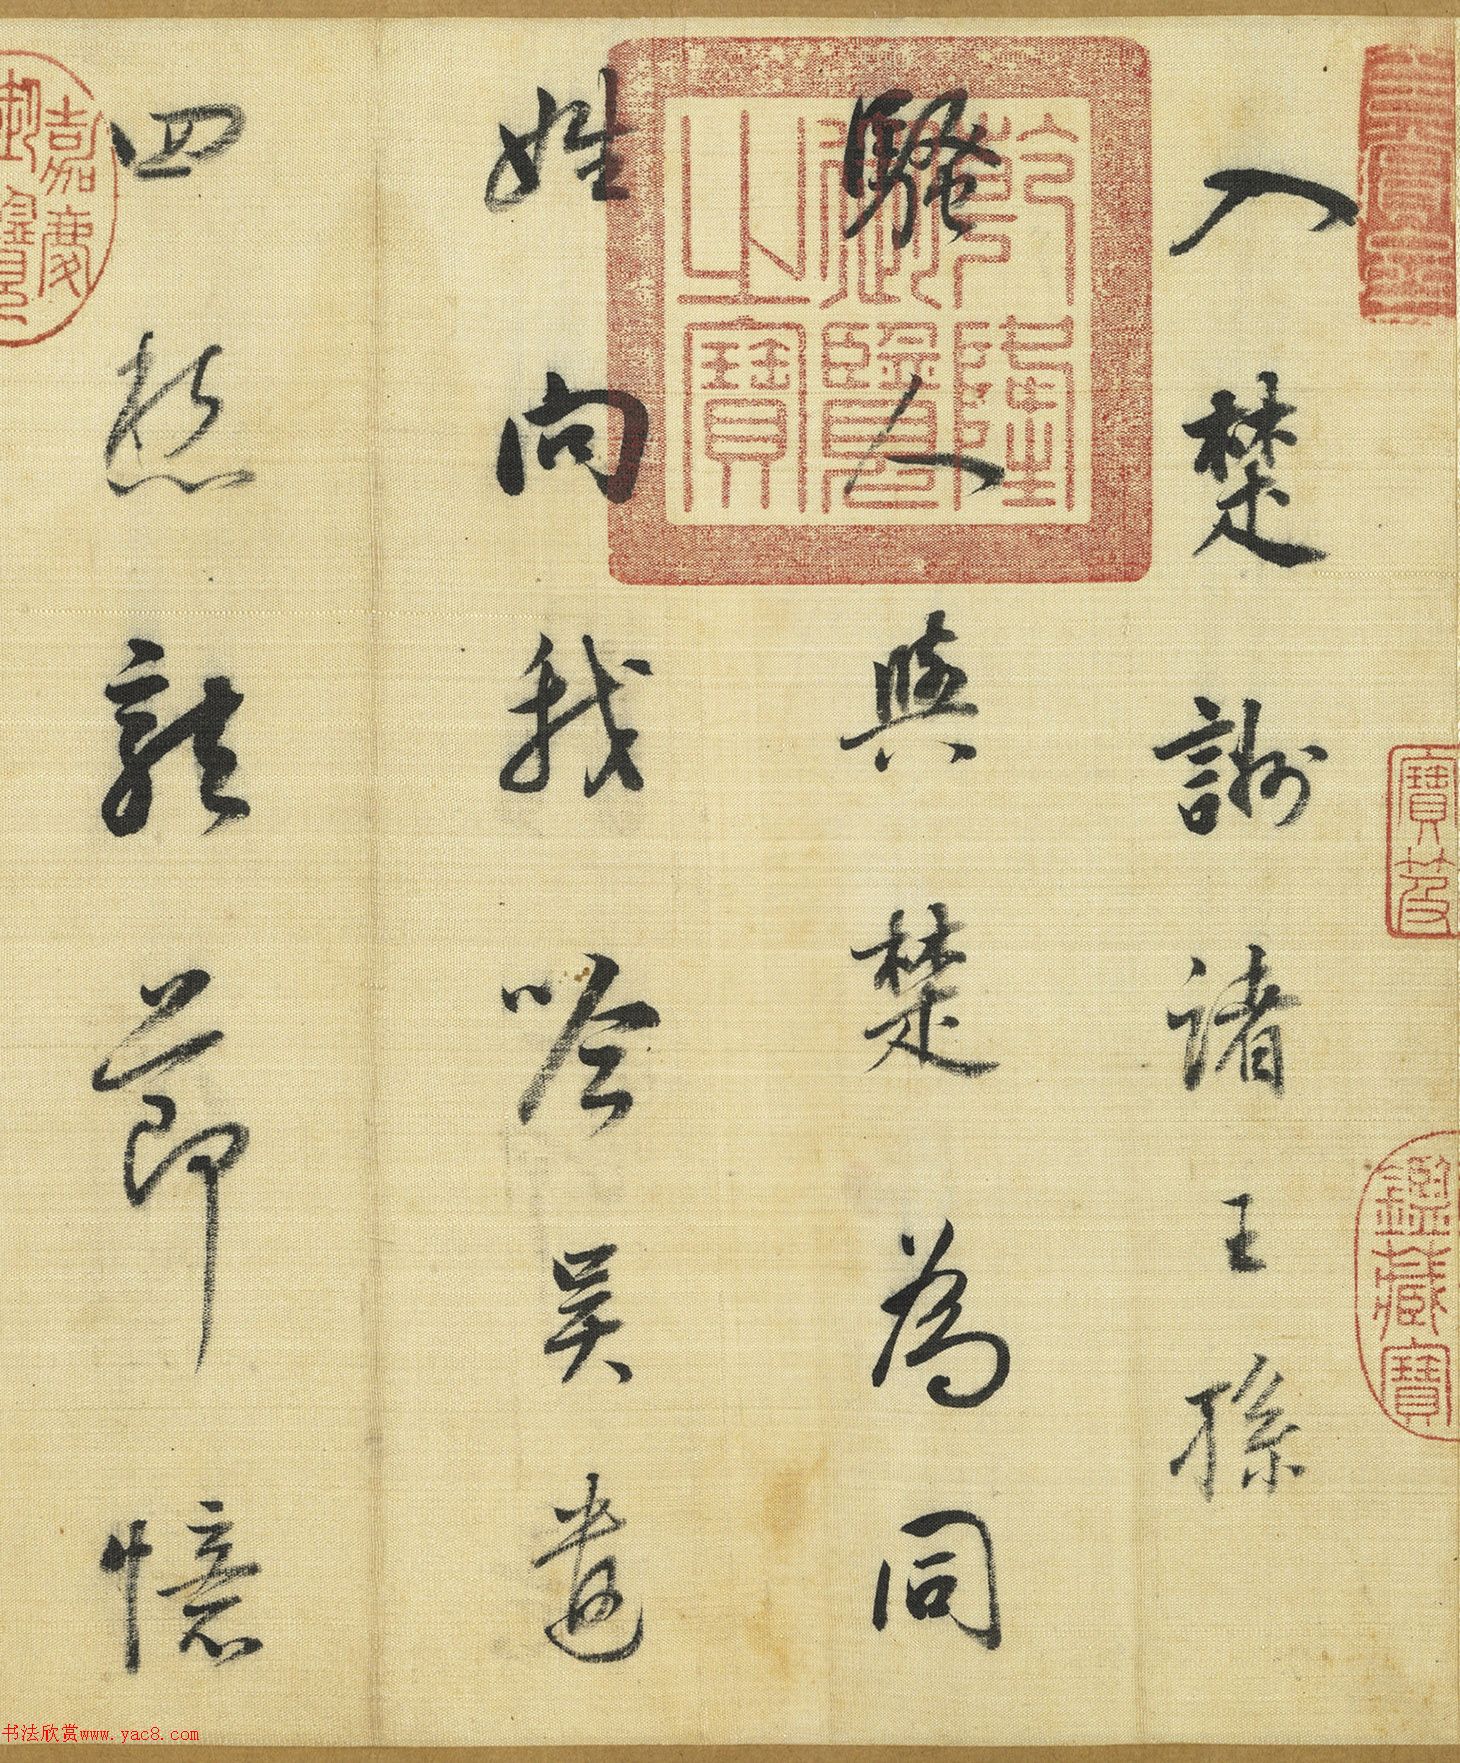 入楚謝諸王孫
騷人與楚為同
姓向我吟吳遺
四愁龍節憶
乾隆御覽之寶
嘉慶御覽
寶笈
鑑藏寶
书法欣赏www.yac8.com